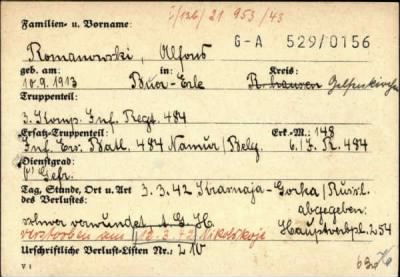 I/126/21 953/43
Familien- u. Vorname:
G-A 529/0156
Romanowski, Alfons
geb. am: in: Kreis:
10.9.1913 Buer-Erle R.hausen Gelsenkirchen
Truppenteil:
3. Komp. Inf. Regt. 484
Ersatz-Truppenteil: Erk.-M.: 148
Inf. Ers. Batl. 484 Namur/Belg. 6./J.R. 484
Dienstgrad:
Gefr.
Tag, Stunde, Ort u. Art 3.3.42 Krasnaja-Gorka/Russl.
des Verlustes: abgegeben:
schwer verwundet A.G.H. Hauptverbpl. 254
verstorben am 12.3.42 Nikolskoje
Urschriftliche Verlust-Listen Nr.: 210
V 1